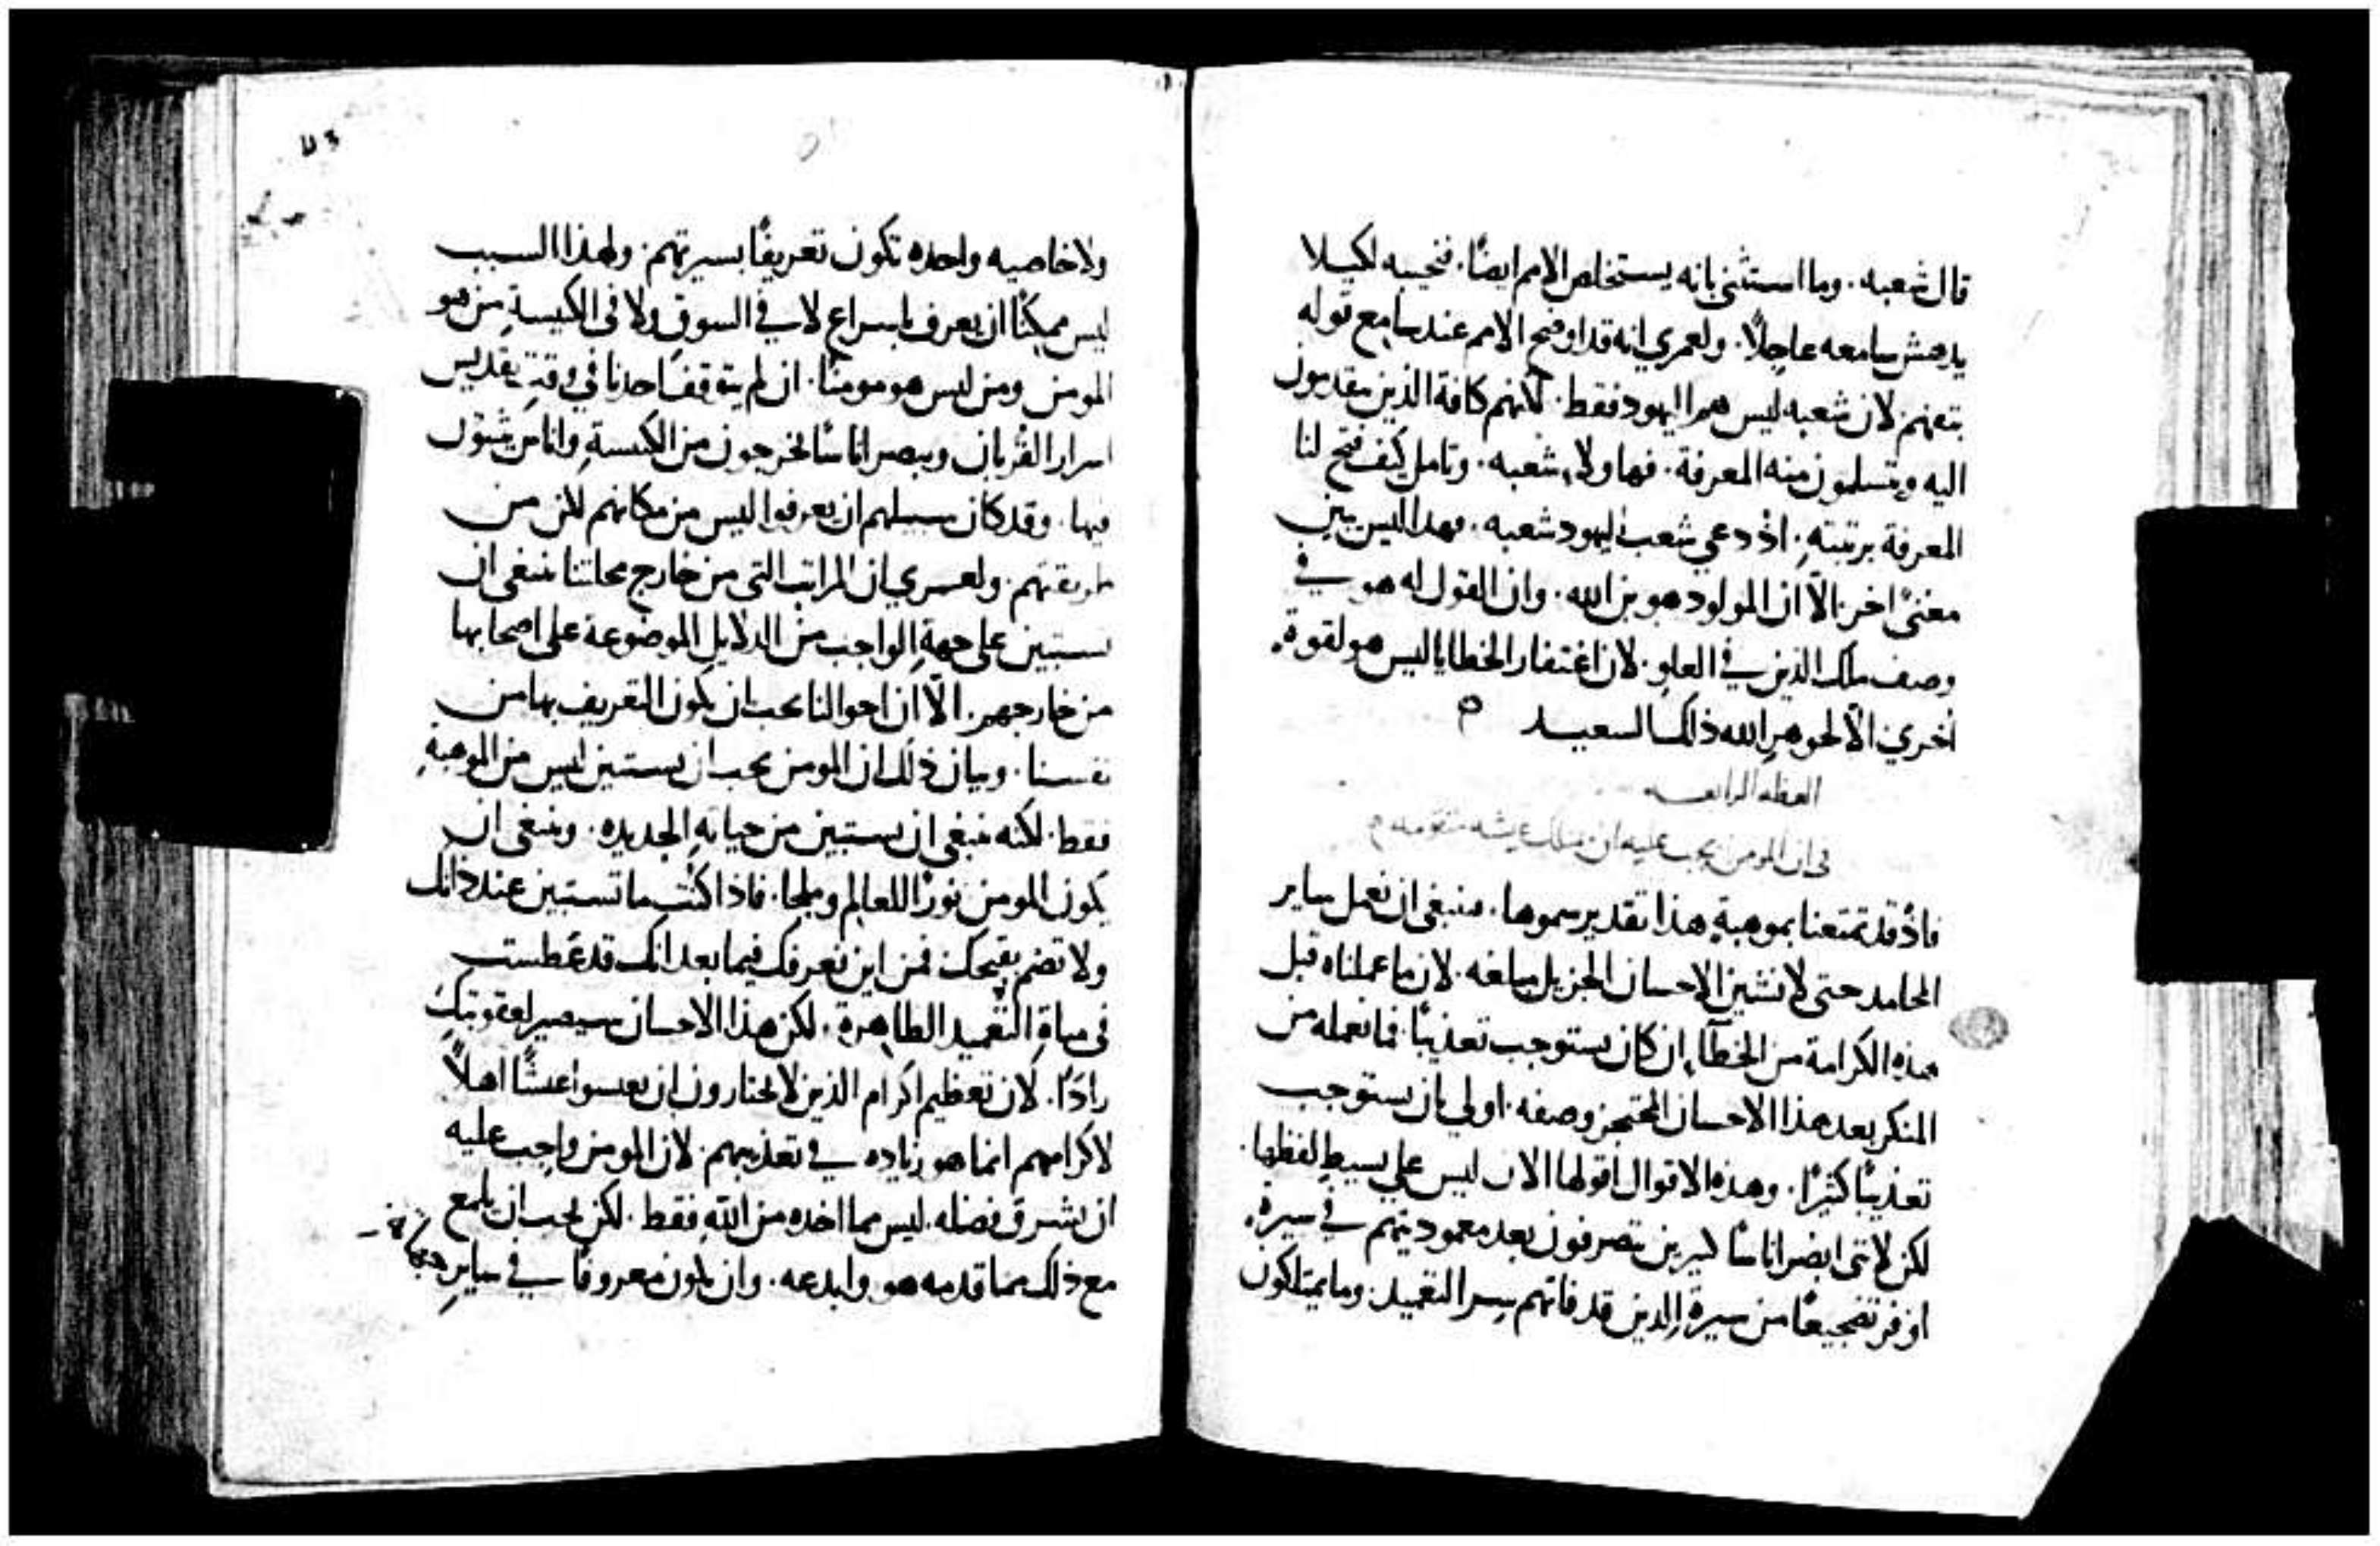 قال شعبه. وما استثنى بانه يستخلص الامم ايضًا. فنجيبه لكيلا
يدهش سامعه عاجلاً. ولعمري انه قد اوضح الامم عند سامع قوله
بتفهم لان شعبه ليس هم اليهود فقط. لكنهم كافة الذين يتقدمون
اليه ويتسلمون منه المعرفة. فهاولاء شعبه. وتامل كيف فتح لنا
المعرفة برتبتهِ. اذ دعي شعب اليهود شعبه. فهذا ليس يبين
معنىً اخر الّا ان المولود هو بن الله. وان القول له هو في
وصف ملك الذين في العلو. لان اغتفار الخطايا ليس هو لقوة
اخري الّا لجوهر الله ذلك السعيد
العظه الرابعه
في ان المومن يجب عليه ان يسلك عيشه متقومه
فاذ قد تمتعنا بموهبةٍ هذا تقدير سموها. فينبغي ان نعمل ساير
المحامد حتى لا نشين الاحسان الجزيل مبلغه. لان ما عملناه قبل
هذه الكرامة من الخطآء ان كان يستوجب تعذيبًا. فما نعمله من
المنكر بعد هذا الاحسان المعجز وصفه. اولي بان يستوجب
تعذيبًا كثيرًا. وهذه الاقوال اقولها الان ليس علي بسيط لفظها.
لكن لانني ابصر اناسًا كثيرين يتصرفون بعد معموديتهم في سيرة
اوفر تضجيعًا من سيرة الذين قد فاتهم سر التعميد. وما يمتلكون
ولا خاصيه واحده تكون تعريفًا بسيرتهم. ولهذا السبب
ليس ممكنًا ان يعرف باسراع لا في السوق ولا في الكنيسةِ من هو
المومن ومن ليس هو مومنًا. ان لم يتوقف احدنا في وقت تقديس
اسرار القربان ويبصر اناسًا يخرجون من الكنيسةِ واناس يثبتون
فيها. وقد كان سبيلهم ان يعرفوا ليس من مكانهم لكن من
طريقتهم. ولعمري ان المراتب التي من خارج محلتنا ينبغي ان
تستبين علي جهةِ الواجب من الدلايل الموضوعة علي اصحابها
من خارجهم. الّا ان احوالنا يجب ان يكون التعريف بها من
نفسنا. وبيان ذلك ان المومن يجب ان يستبين ليس من الموهبةِ
فقط. لكنه ينبغي ان يستبين من حياتهِ الجديده. وينبغي ان
يكون المومن نورًا للعالم وملحا. فاذا كنت ما تستبين عند ذاتك
ولا تضم بقيحك فمن اين نعرفك فيما بعد انك قد غطست
في مياةِ التعميد الطاهرة. لكن هذا الاحسان سيصير لعقوبتك
زادًا. لان تعظيم اكرام الذين لا يختارون ان يعيشوا عيشًا اهلاً
لاكرامهم انما هو زياده في تعذيبهم. لان المومن واجب عليه
ان يشرق فضله. ليس مما اخده من اللهِ فقط. لكن يجب ان يلمع
مع ذلك مما قدمه هو وابدعه. وان يكون معروفًا في سايرِ